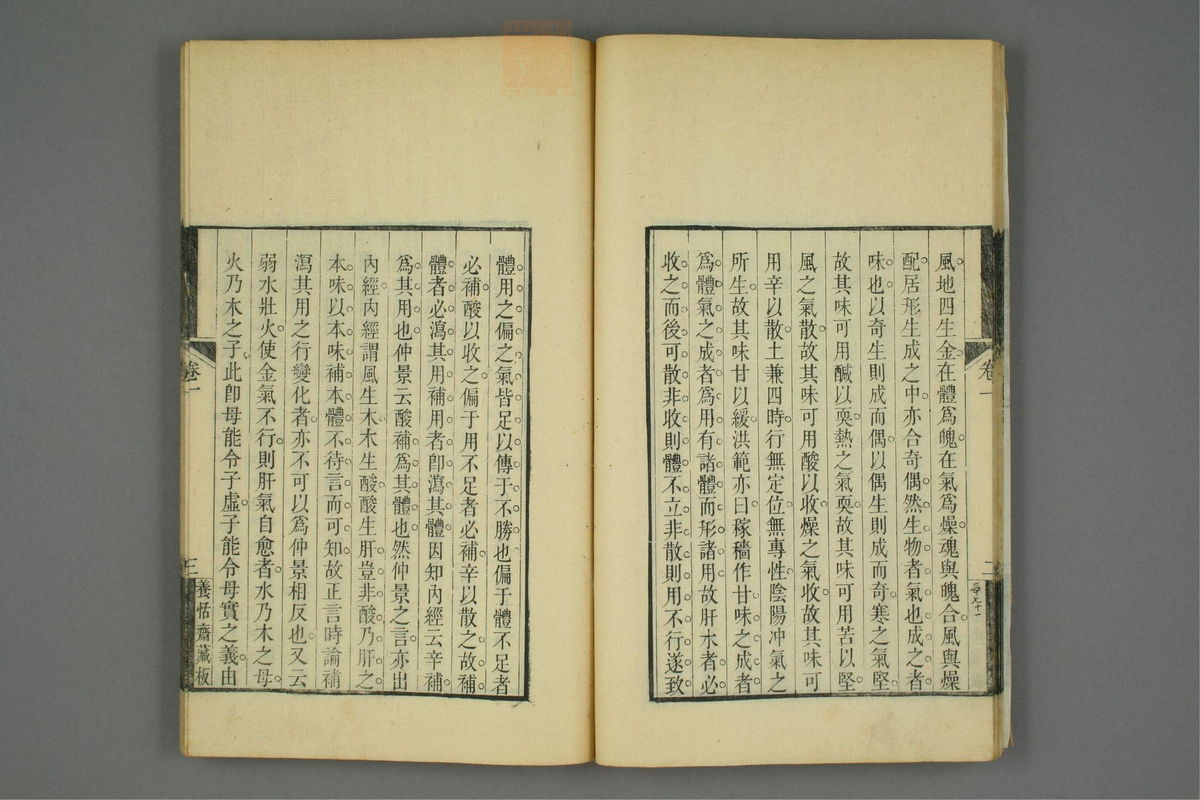 風地四生金在體爲魄在氣爲燥魂與魄合風與燥
配居形生成之中亦合奇偶然生物者氣也成之者
味也以奇生則成而偶以偶生則成而奇寒之氣堅
故其味可用鹹以耎熱之氣耎故其味可用苦以堅
風之氣散故其味可用酸以收燥之氣收故其味可
用辛以散土兼四時行無定位無專性陰陽冲氣之
所生故其味甘以緩洪範亦曰稼穡作甘味之成者
爲體氣之成者爲用有諸體而形諸用故肝水者必
收之而後可散非收則體不立非散則用不行遂致
卷一
二
體用之偏之氣皆足以傳于不勝也偏于體不足者
必補酸以收之偏于用不足者必補辛以散之故補
體者必瀉其用補用者卽瀉其體因知內經云辛補
爲其用也仲景云酸補爲其體也然仲景之言亦出
內經內經謂風生木木生酸酸生肝豈非酸乃肝之
本味以本味補本體不待言而可知故正言時論補
瀉其用之行變化者亦不可以爲仲景相反也又云
弱水壯火使金氣不行則肝氣自愈者水乃木之母
火乃木之子此卽母能令子虛子能令母實之義由
卷一
三
養恬齋藏板